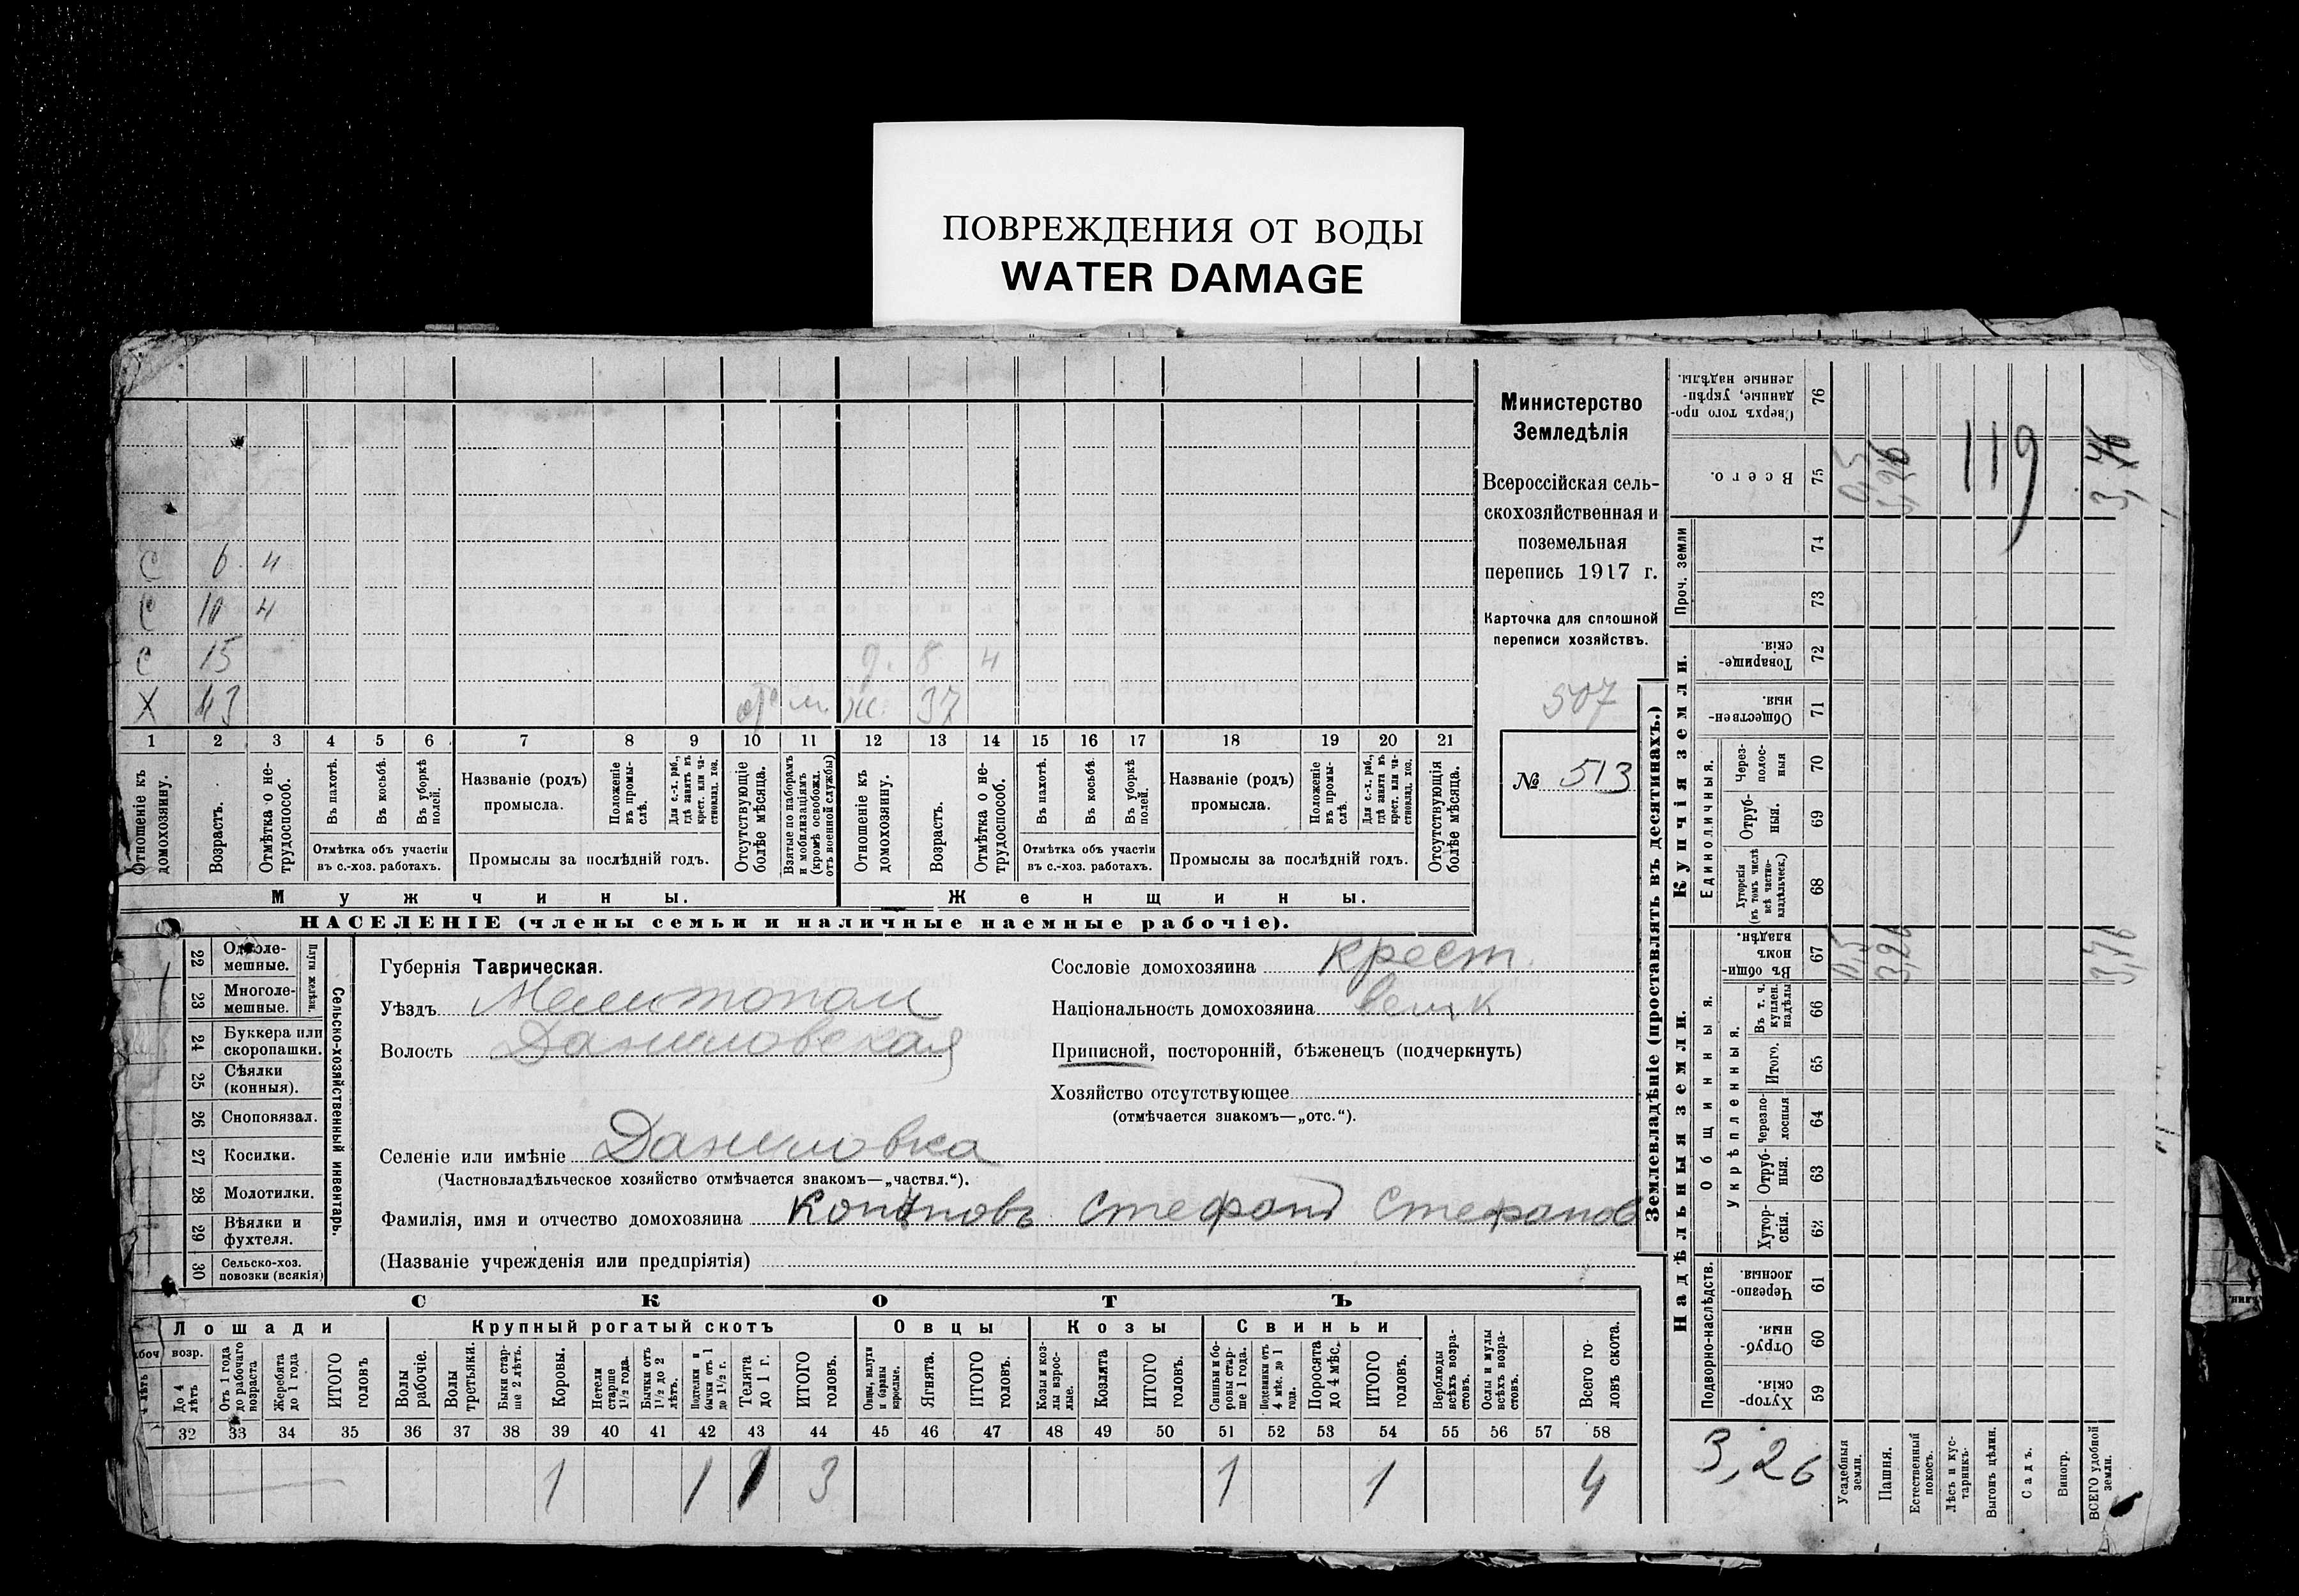 ПОВРЕЖДЕНИЯ ОТ ВОДЫ
WATER DAMAGE
Министерство
Земледѣлія
Всероссійская сель-
скохозяйственная и
поземельная
перепись 1917 г.
Карточка для сплошной
переписи хозяйствъ.
507
№ 513
С 6 н
С 10 н
С 15 д. 8 н
Х 43 ж. 37
1 2 3 4 5 6 7 8 9 10 11 12 13 14 15 16 17 18 19 20 21
Отношеніе къ домохозяину.
Возрастъ.
Отмѣтка о не-трудоспособ.
Въ пахотѣ.
Въ косьбѣ.
Въ уборкѣ полей.
Отмѣтка объ участіи въ с.-хоз. работахъ.
Названіе (родъ) промысла.
Положеніе въ промы-слѣ.
Для с.-х. раб., гдѣ занятъ въ крест. или ча-стновлад. хоз.
Промыслы за послѣдній годъ.
Отсутствующіе болѣе мѣсяца.
Взятые по наборамъ и мобилизаціямъ (кромѣ освобожд. отъ военной службы)
Отношеніе къ домохозяину.
Возрастъ.
Отмѣтка о не-трудоспособ.
Въ пахотѣ.
Въ косьбѣ.
Въ уборкѣ полей.
Отмѣтка объ участіи въ с.-хоз. работахъ.
Названіе (родъ) промысла.
Положеніе въ промы-слѣ.
Для с.-х. раб., гдѣ занята въ крест. или ча-стновлад. хоз.
Промыслы за послѣдній годъ.
Отсутствующія болѣе мѣсяца.
Мужчины. Женщины.
НАСЕЛЕНІЕ (члены семьи и наличные наемные рабочіе).
22 Одноле-мешные.
23 Многоле-мешные.
Плуги желѣзн.
24 Буккера или скоропашки.
25 Сѣялки (конныя).
26 Сноповязал.
27 Косилки.
28 Молотилки.
29 Вѣялки и фухтеля.
30 Сельско-хоз. повозки (всякія)
Сельско-хозяйственный инвентарь.
Губернія Таврическая.
Уѣздъ Мелитопол
Волость Даниловская
Селеніе или имѣніе Даниловка
(Частновладѣльческое хозяйство отмѣчается знакомъ—„частвл.“).
Фамилія, имя и отчество домохозяина Стефанъ Стефанов
(Названіе учрежденія или предпріятія)
Сословіе домохозяина крест.
Національность домохозяина велик
Приписной, посторонній, бѣженецъ (подчеркнуть)
Хозяйство отсутствующее
(отмѣчается знакомъ—„отс.“).
СКОТЪ
Лошади Крупный рогатый скотъ Овцы Козы Свиньи
возр.
До 4 лѣтъ
Отъ 1 года до рабочаго возраста
Жеребята до 1 года
ИТОГО головъ
Волы рабочіе.
Волы третьяки.
Быки стар-ше 2 лѣтъ.
Коровы.
Нетели старше 1½ года.
Бычки отъ 1½ до 2 лѣтъ.
Подтелки и бычки отъ 1 до 1½ г.
Телята до 1 г.
ИТОГО головъ.
Овцы, валухи и бараны взрослые.
Ягнята.
ИТОГО головъ.
Козы и коз-лы взрос-лые.
Козлята
ИТОГО головъ.
Свиньи и бо-ровы стар-ше 1 года.
Подсвинки отъ 4 мѣс. до 1 года.
Поросята до 4 мѣс.
ИТОГО головъ.
Верблюды всѣхъ возра-стовъ.
Ослы и мулы всѣхъ возра-стовъ.
Всего го-ловъ скота.
32 33 34 35 36 37 38 39 40 41 42 43 44 45 46 47 48 49 50 51 52 53 54 55 56 57 58
1 1 1 3 1 1 4
Землевладѣніе (проставлять въ десятинахъ.)
Надѣльныя земли. Купчія земли. Проч. земли
Подворно-наслѣдств. Общинныя. Укрѣпленныя. Единоличныя.
59 Хутор-скія.
60 Отруб-ныя.
61 Черезпо-лосныя.
62 Хутор-скія.
63 Отруб-ныя.
64 Черезпо-лосныя
65 Итого.
66 Въ т. ч. куплен. надѣлы
67 Въ общи-номъ владѣн.
68 Хуторскія (въ томъ числѣ всѣ частно-владѣльческ.)
69 Отруб-ныя.
70 Через-полос-ныя
71 Обществен-ныя.
72 Товарище-скія
73
74
75 Всего.
76 Сверхъ того про-данные, укрѣп-ленные надѣлы.
Усадебныя земли. 0,5 0,5
Пашня.
Естественный покосъ.
Лѣсъ и кус-тарникъ.
Выгонъ цѣлин.
Садъ.
Виногр.
ВСЕГО удобной земли. 3,76 3,76
119
3,26